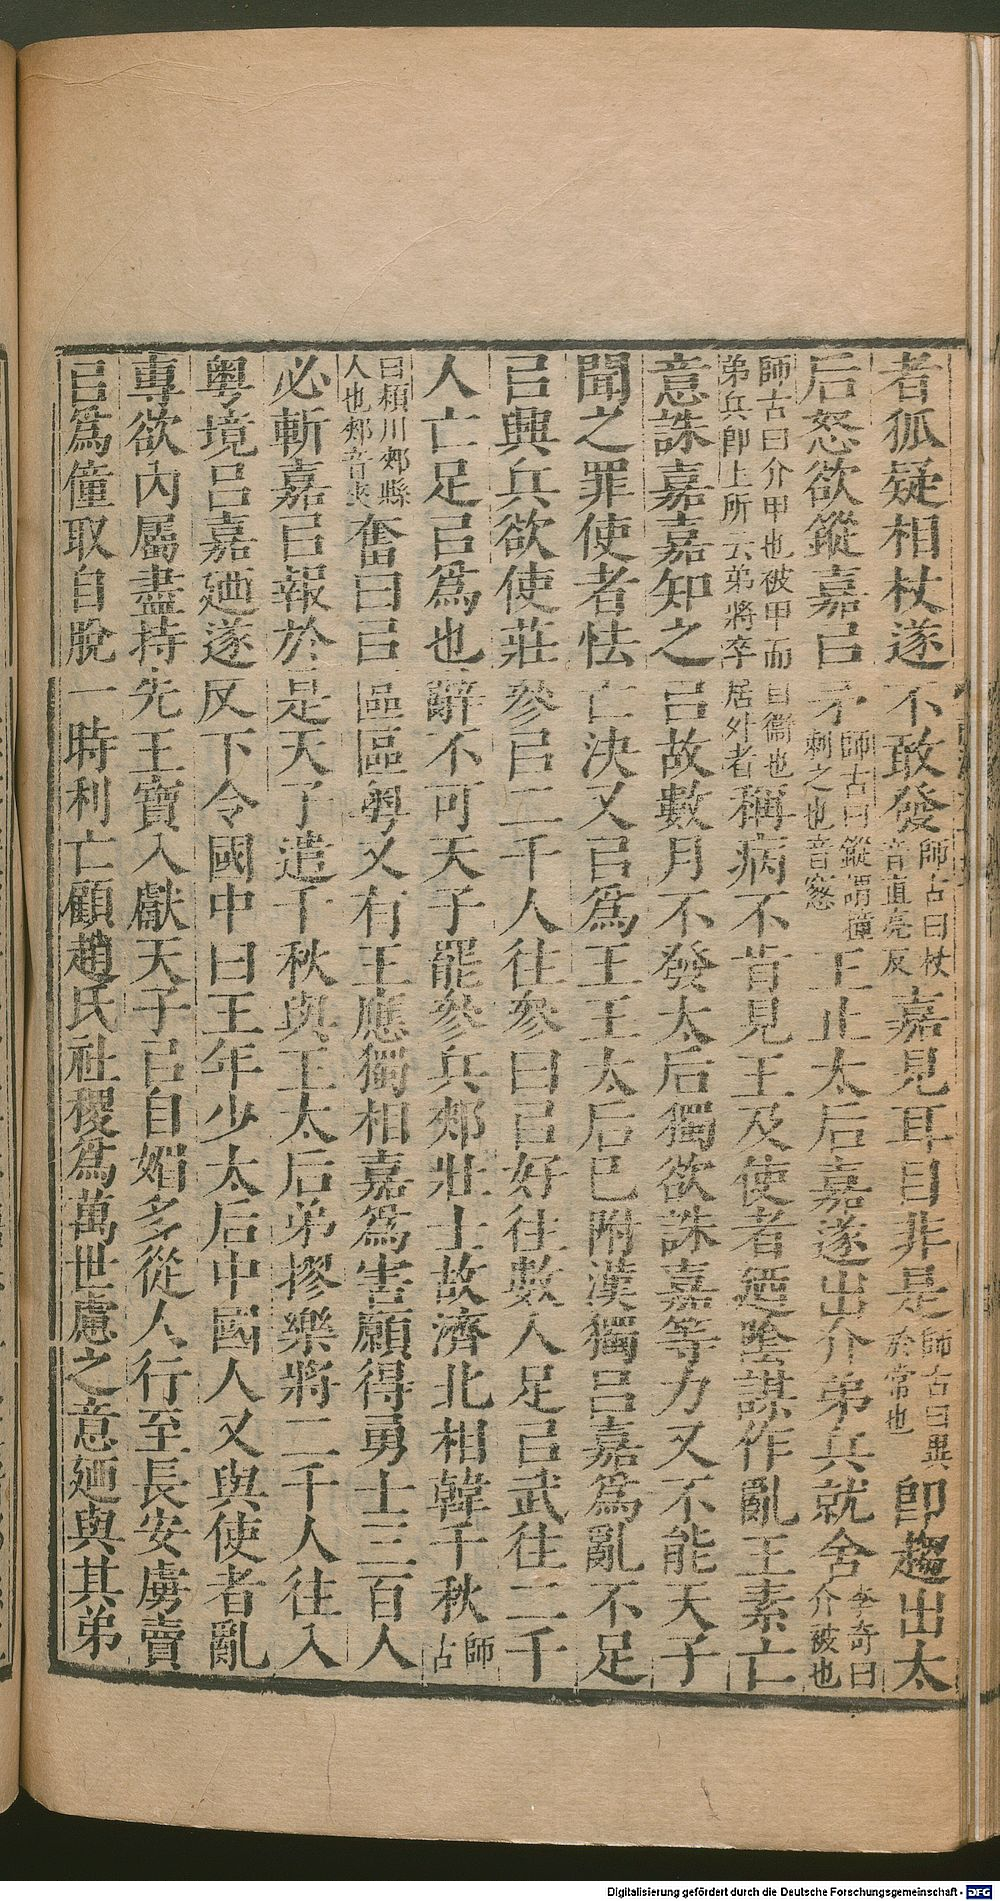 者狐疑相杖遂不敢發師古曰杖音直亮反嘉見耳目非是師古曰異於常也卽趨出太
后怒欲鏦嘉㠯矛師古曰鏦謂撞刺之也音窓王止太后嘉遂出介弟兵就舍李奇曰介被也
師古曰介甲也被甲而自衞也弟兵卽上所云弟將卒居外者稱病不肯見王及使者廼陰謀作亂王素亡
意誅嘉嘉知之㠯故數月不發太后獨欲誅嘉等力又不能天子
聞之罪使者怯亡決又㠯爲王王太后已附漢獨呂嘉爲亂不足
㠯興兵欲使莊參㠯二千人往參曰㠯好往數人足㠯武往二千
人亡足㠯爲也辭不可天子罷參兵郟壯士故濟北相韓千秋師古
曰潁川郟縣人也郟音夾奮曰㠯區區粤又有王應獨相嘉爲害願得勇士三百人
必斬嘉㠯報於是天子遣千秋與王太后弟摎樂將二千人往入
粤境呂嘉廼遂反下令國中曰王年少太后中國人又與使者亂
專欲內屬盡持先王寶入獻天子㠯自媚多從人行至長安虜賣
㠯爲僮取自脫一時利亡顧趙氏社稷爲萬世慮之意廼與其弟
Digitalisierung gefördert durch die Deutsche Forschungsgemeinschaft - DFG